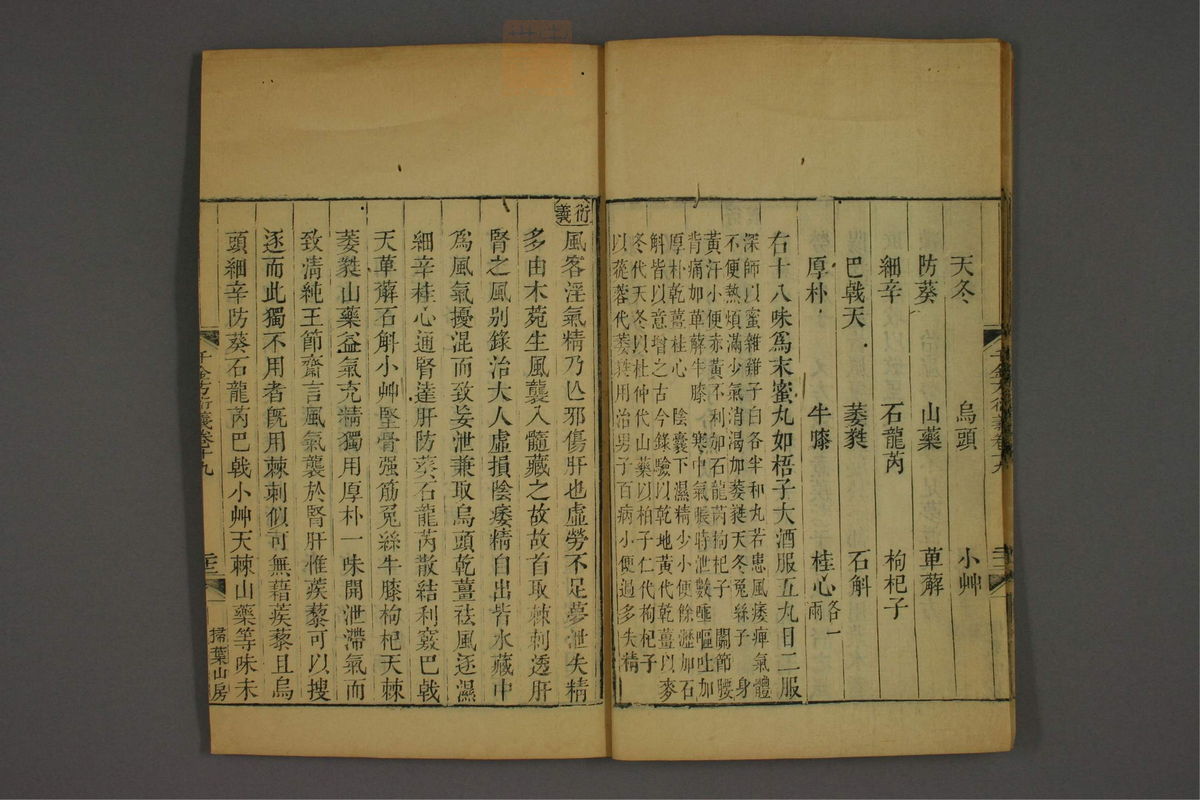 天冬 烏頭 小艸
防葵 山藥 萆薢
細辛 石龍芮 枸杞子
巴戟天 萎蕤 石斛
厚朴 牛膝 桂心各一兩
右十八味爲末蜜丸如梧子大酒服五丸日二服
深師以蜜雜雞子白各半和丸若患風痿痺氣體
不便熱煩滿少氣消渴加萎蕤天冬兔絲子 身
黃汗小便赤黃不利加石龍芮枸杞子 關節腰
背痛加萆薢牛膝 寒中氣脹時泄數噫嘔吐加
厚朴乾薑桂心 陰囊下濕精少小便餘瀝加石
斛皆以意增之古今錄驗以乾地黃代乾薑以麥
冬代天冬以杜仲代山藥以柏子仁代枸杞子
以蓯蓉代萎蕤用治男子百病小便過多失精
衍義
風客淫氣精乃亾邪傷肝也虛勞不足夢泄失精
多由木菀生風襲入髓藏之故故首取棘刺透肝
腎之風别錄治大人虛損陰痿精自出皆水藏中
爲風氣擾混而致妄泄兼取烏頭乾薑祛風逐濕
細辛桂心通腎達肝防葵石龍芮散結利竅巴戟
天萆薢石斛小艸堅骨强筋兔絲牛膝枸杞天棘
萎蕤山藥益氣充精獨用厚朴一味開泄滯氣而
致清純王節齋言風氣襲於腎肝惟蒺藜可以搜
逐而此獨不用者旣用棘刺似可無藉蒺藜且烏
頭細辛防葵石龍芮巴戟小艸天棘山藥等味未
千金方衍義卷十九
掃葉山房